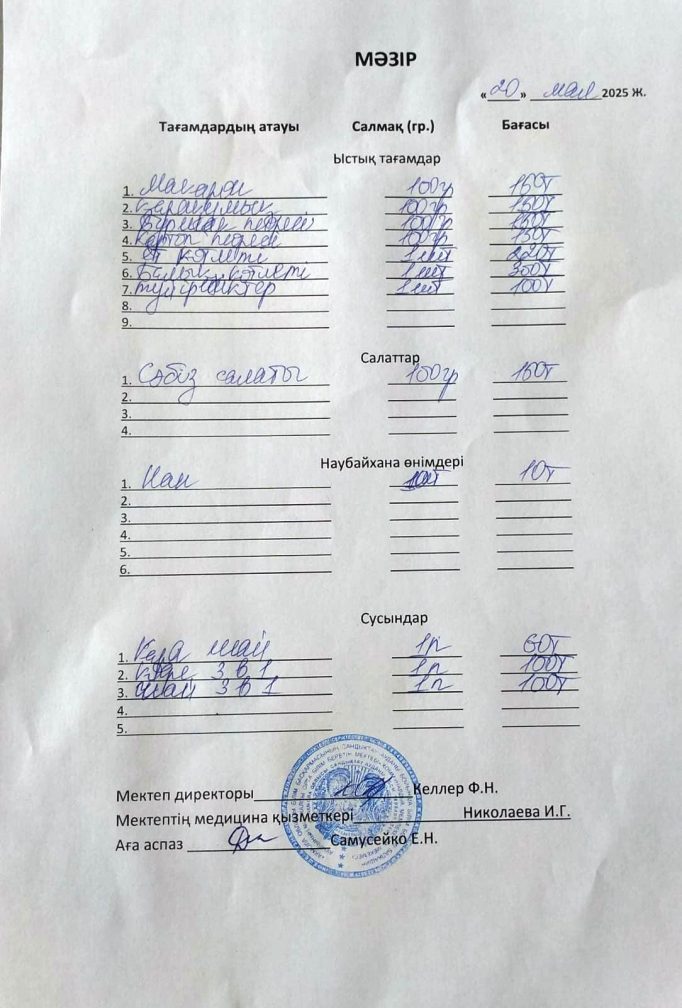 МӘЗІР
«20» мая 2025 Ж.
Тағамдардың атауы Салмақ (гр.) Бағасы
Ыстық тағамдар
1. Макарон 100гр 150т
2. Қарақұмық 100гр 150т
3. Бұршақ пюреsі 100гр 130т
4. Картоп пюресі 100гр 150т
5. ет котлеті 1 шт 220т
6. Балық котлеті 1 шт 300т
7. түйіршіктер 1 шт 100т
8.
9.
Салаттар
1. Сәбіз салаты 100гр 150т
2.
3.
4.
Наубайхана өнімдері
1. Нан 10т
2.
3.
4.
5.
6.
Сусындар
1. Қара шай 1п 60т
2. кофе 3 в 1 1п 100т
3. шай 3 в 1 1п 100т
4.
5.
Мектеп директоры Келлер Ф.Н.
Мектептің медицина қызметкері Николаева И.Г.
Аға аспаз Самусейко Е.Н.